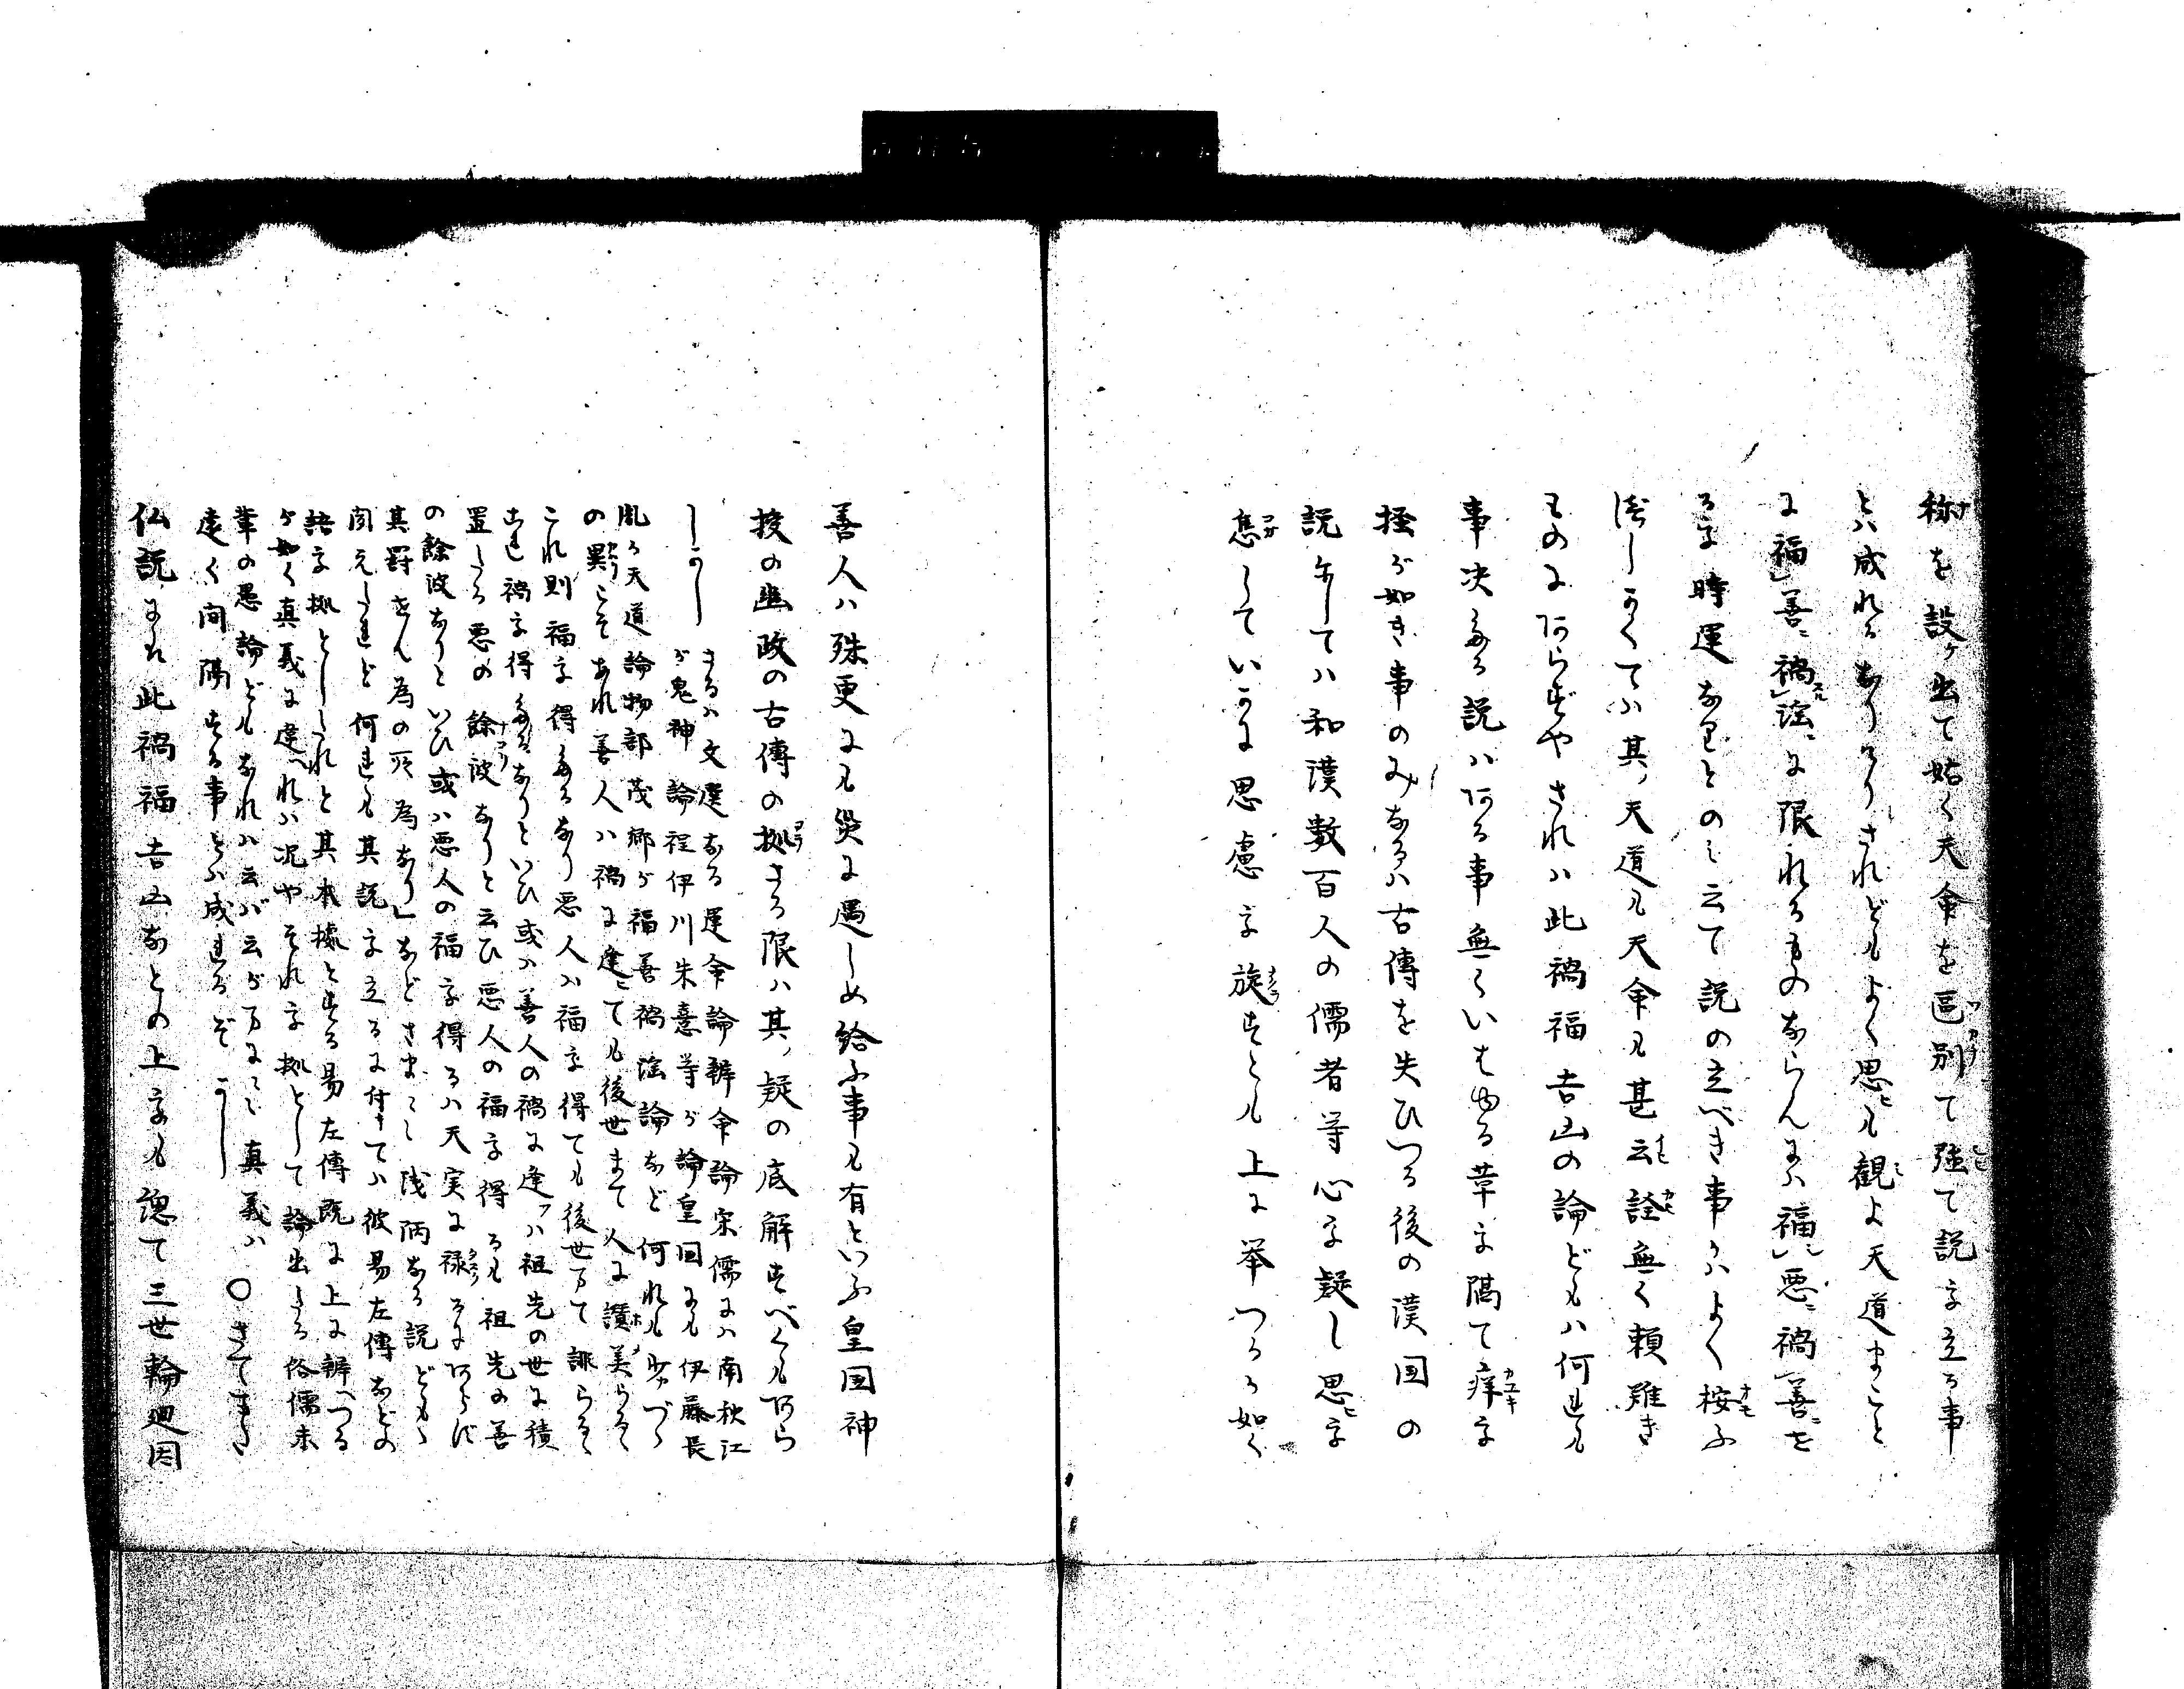 称を設ヶ出て姑く天命を區別て強て説を立る事
とハ成れるなりけりされどもよく思ヒも観よ天道まこと
に福」善ニ禍」淫ニに限れるものならんにハ福」悪ニ禍」善ニを
る時運なりとのミ云て説の立べき事かはよく按ふ
べしかくてハ其ノ天道も天命も甚云詮無く頼難き
ものにあらずやされハ此禍福吉凶の論どもハ何れも
事決たる説ハある事無くいはゆる草を隔て痒を
掻が如き事のみなるハ古傳を失ひつる後の漢国の
説にしてハ和漢数百人の儒者等心を疑し思ヒを
憑していかに思慮を旋すとも上に挙つるる如く
善人ハ殊更にも災に遇しめ給ふ事も有といふ皇国神
授の幽政の古傳の拠さる限ハ其ノ疑の底解すべくもあら
じかし
さるハ文選なる運命論辨命論宋儒にハ南秋江
が鬼神論程伊川朱憙等が論皇国にも伊藤長
胤る天道論物部茂郷が福善禍淫論など何れも少づゝ
の異こそあれ善人ハ禍に逢ても後世まて人に讃美らるゝ
これ則福を得たるなり悪人ハ福を得ても後世まて誹らるゝ
これ禍を得たるなりといひ或ハ善人の禍に逢フハ祖先の世に積
置したる悪の餘波なりと云ひ悪人の福を得るも祖先の善
の餘波なりといひ或ハ悪人の福を得るハ天実に禄るにあらず
其罸せん為の所為なり」などさま〳〵浅陋なる説ども
聞えしたれど何れも其説を立るに付きてハ彼易左傳などの
語を拠としたれと其本據とする易左傳既に上に辨へつる
が如く真義に違へれハ况やそれを拠として論出したる俗儒末
輩の愚論どもなれハ云バ云ふ万にしく真義ハ
遠く間隔する事とハ成れるぞかし
〇さてまた
仏説にハ此禍福吉凶なとの上をも認て三世輪廻因